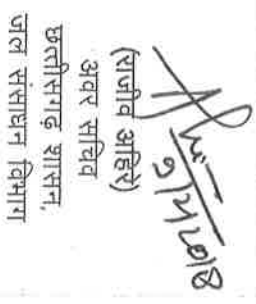 9/2/2018
(राजीव अहिरे)
अवर सचिव
छत्तीसगढ़ शासन,
जल संसाधन विभाग